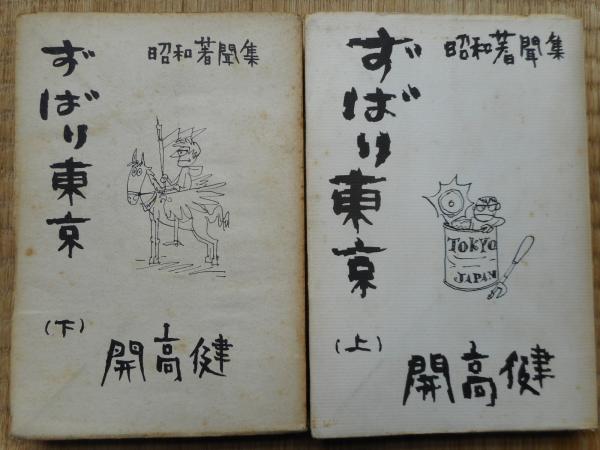 ずばり東京
昭和著聞集
(下)
開高健
ずばり東京
昭和著聞集
TOKYO
JAPAN
(上)
開高健